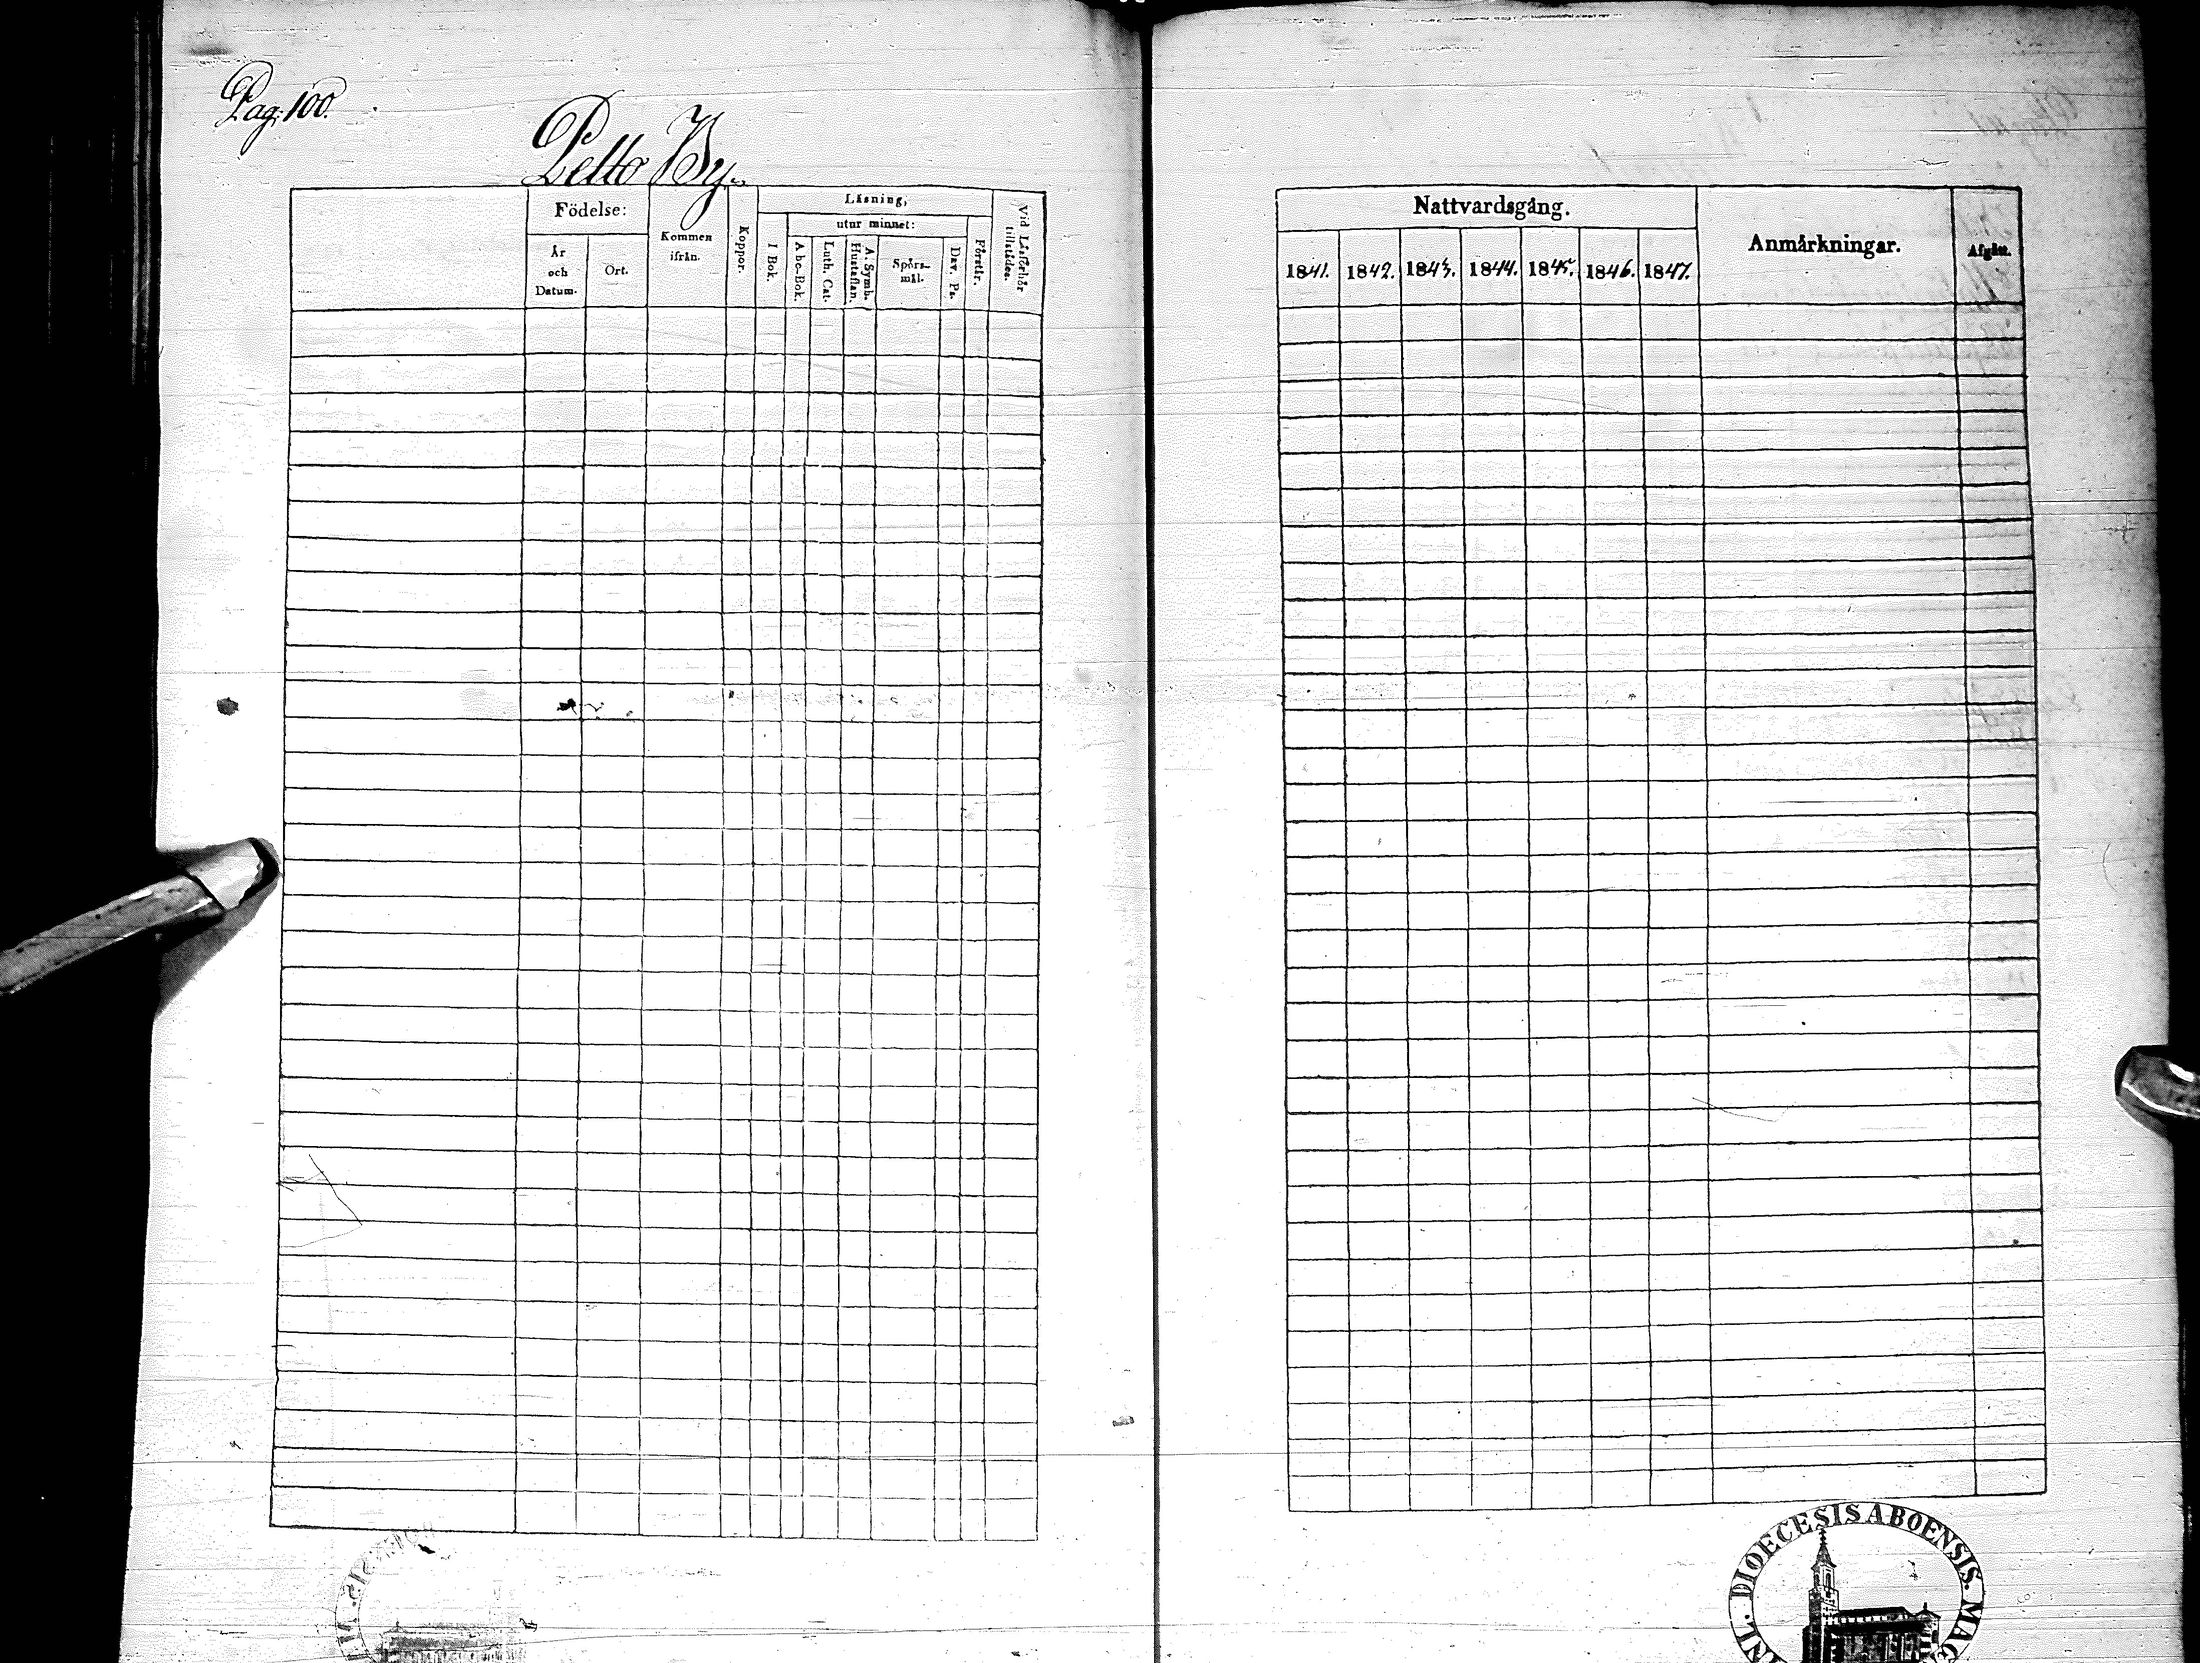 Pag. 100.
Pelto By.
Födelse:
År
och
Datum.
Ort.
Kommen
ifrån.
Koppor.
Läsning,
I Bok.
utur minnet:
Abc-Bok.
Luth. Cat.
A: Symb.
Hustaflan.
Spörs-
mål.
Dav. Ps.
Förstår.
Vid Läsförhör
tillstädes.
Nattvardsgång.
1841. 1842. 1843. 1844. 1845. 1846. 1847.
Anmärkningar.
Afgått.
DIOECESIS ABOENSIS.